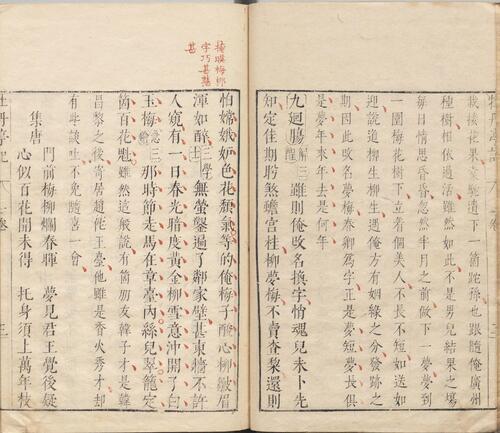 栽接花果家兒遺下一箇駝孫跟隨俺廣州
種樹相依過活雖然如此不是男兒結果之場
每日情思昏昏忽然半月之前做下一夢夢到
一園梅花樹下立着個美人不長不短如送如
迎說道柳生柳生遇俺方有姻緣之分發跡之
期因此改名夢梅春卿為字正是夢短夢長俱
是夢年來年去是何年
九迴腸 解三酲 雖則俺改名換字悄魂兒未卜先
知定佳期盼煞蟾宮桂柳夢梅不賣查黎還則
梅柳
字巧甚
甚
怕嫦娥妬色花頹氣等的俺梅子酸心柳皺眉
渾如醉 三學士 無螢鑿遍了鄰家壁甚東墻不許
人窺有一日春光暗度黃金柳雪意沖開了白
玉梅 急三鎗 那時節走馬在章臺內絲兒翠籠定
箇百花魁雖然這般說有箇朋友韓子才是韓
昌黎之後寄居趙佗王臺他雖是香火秀才却
有些談吐不免隨喜一會
集唐
門前梅柳爛春暉 夢見君王覺後疑
心似百花開未得 托身須上萬年枝
牡丹亭記 卷 三